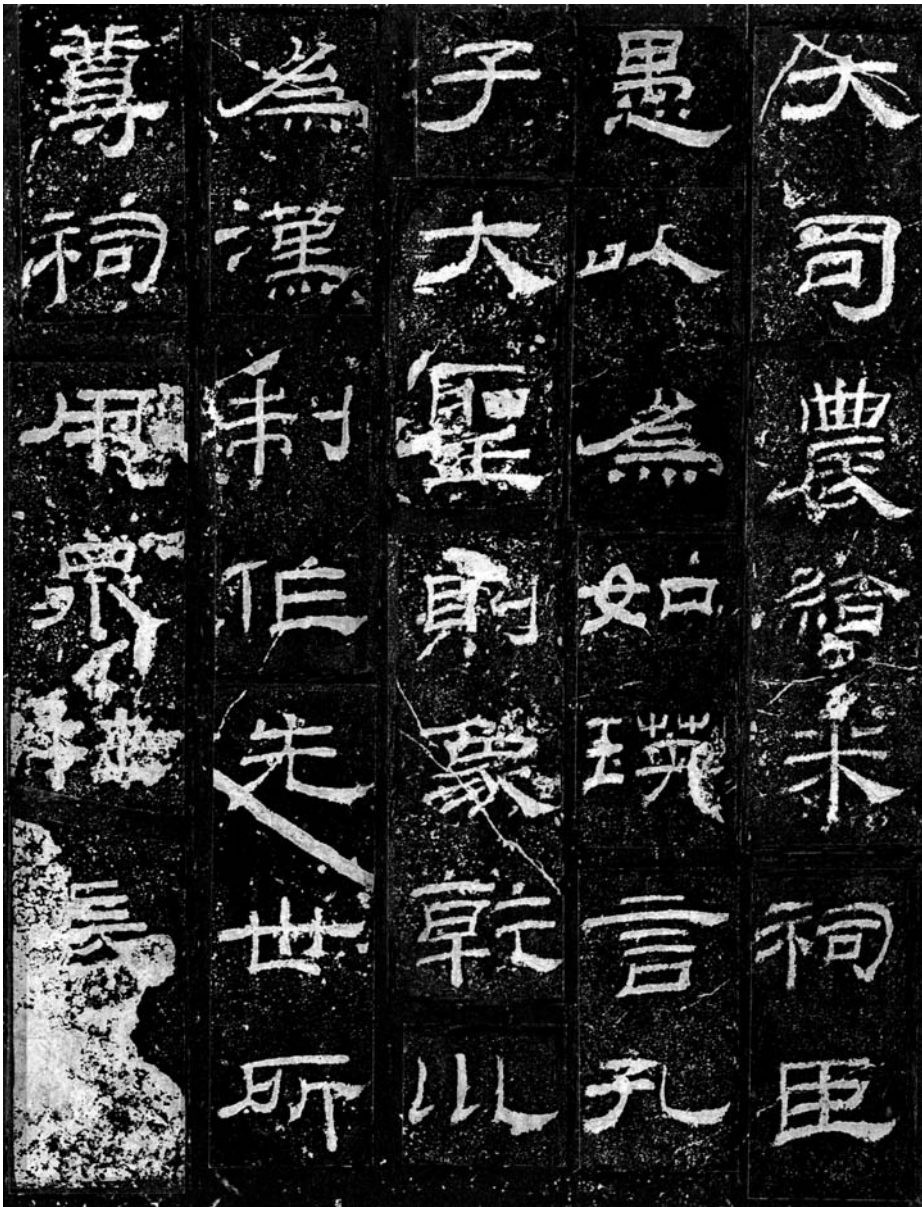 大司農給米祠臣
愚以為如瑛言孔
子大聖則象乾川
為漢制作先世所
尊祠用眾牲長